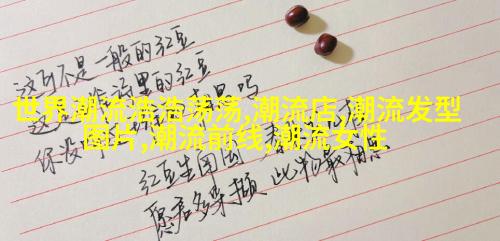 这可不是一般的红豆
这 诗里的红豆
世界潮流浩浩荡荡,潮流店,潮流发型
图片,潮流前线,潮流女性
你没 吗
红豆生南国 春
愿君多采撷 此物最相思